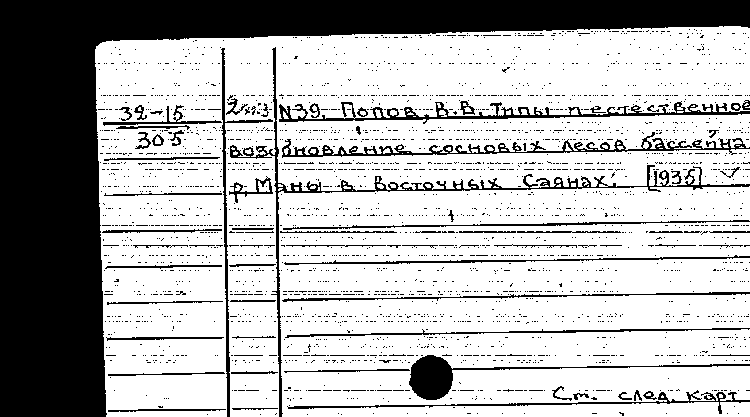 32-15 2экз N39. Попов, В.В. Типы и естественное
305
возобновление сосновых лесов бассейна
р. Маны в Восточных Саянах. [1935] ✓
См. след. карт